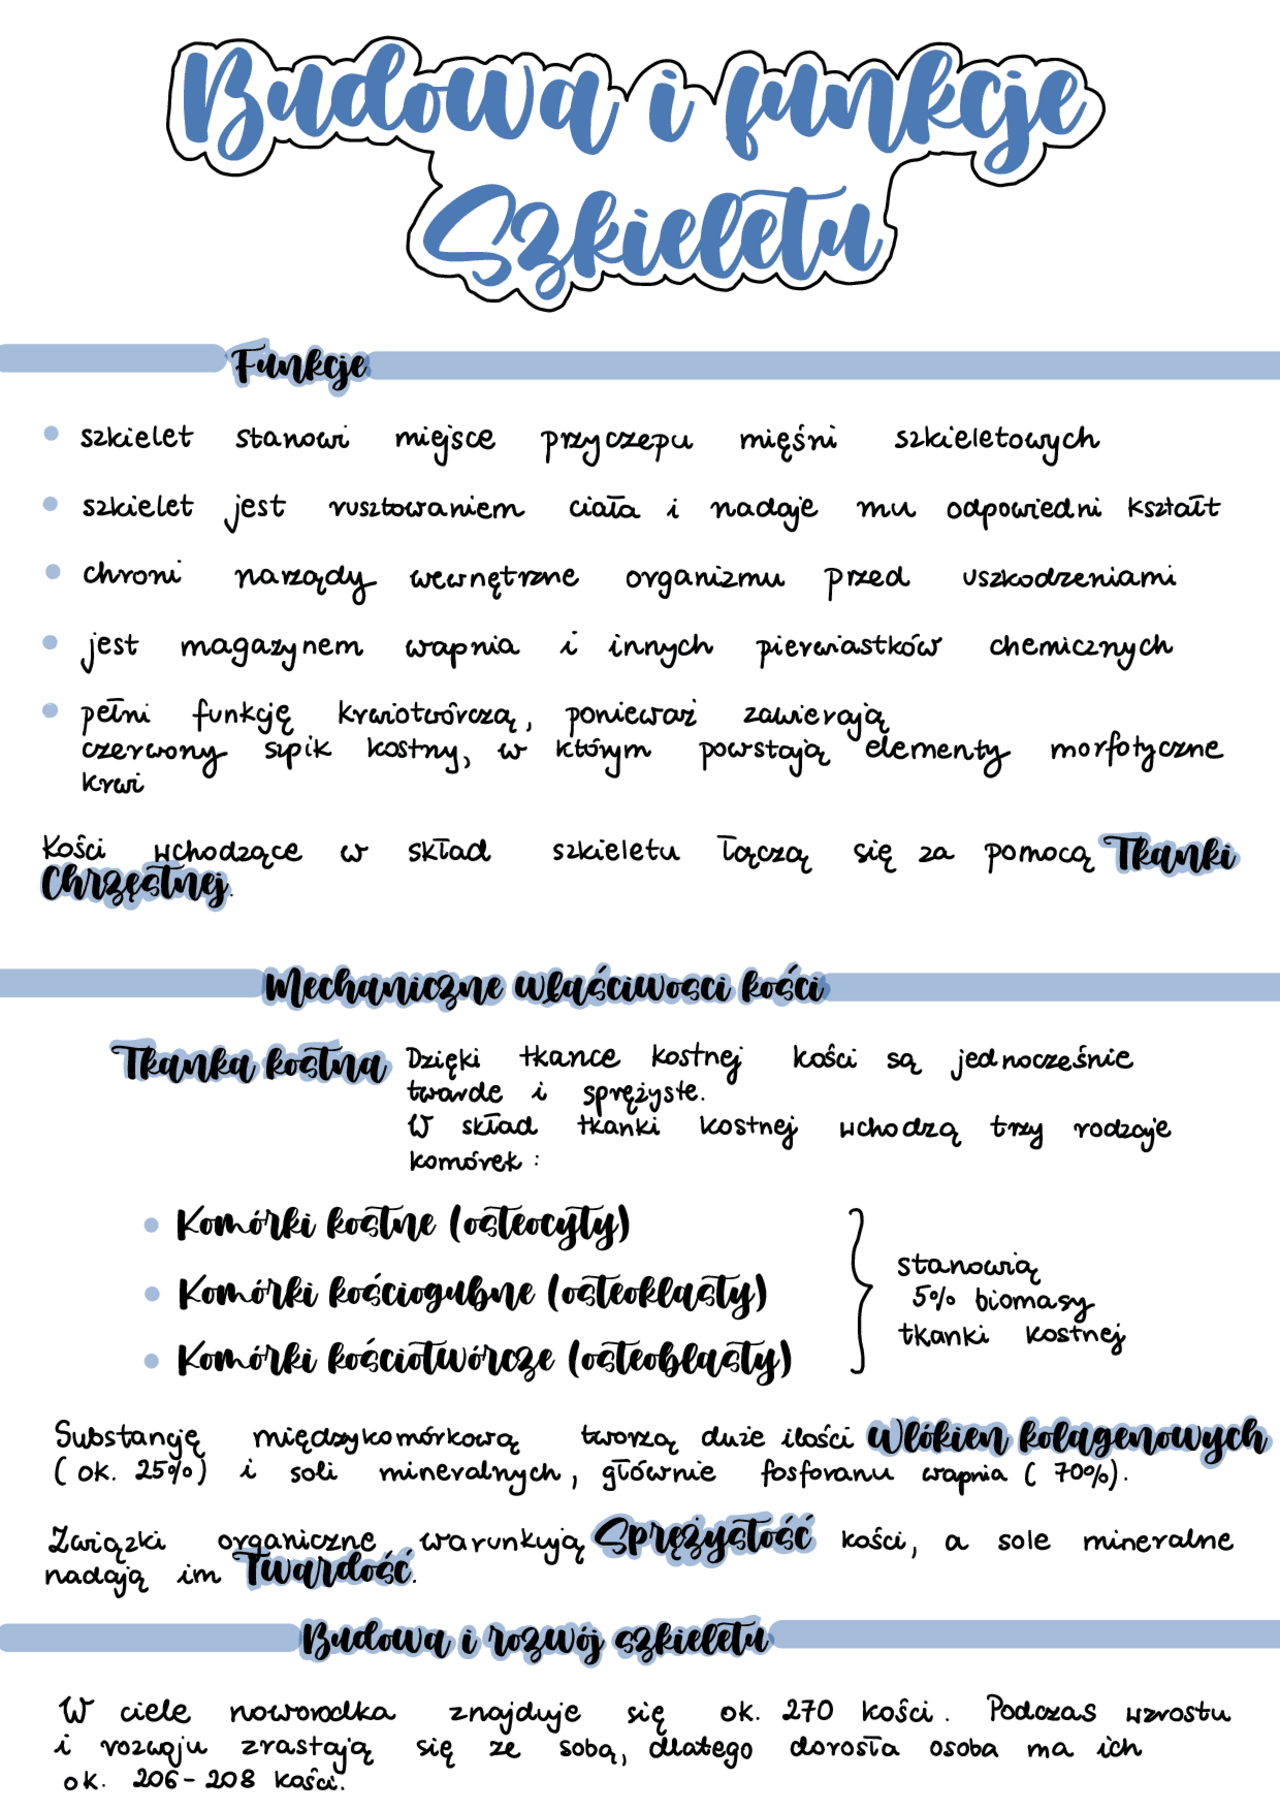 Budowa i funkcje
Szkieletu
Funkcje
szkielet stanowi miejsce przyczepu mięśni szkieletowych
szkielet jest rusztowaniem ciała i nadaje mu odpowiedni kształt
chroni narządy wewnętrzne organizmu przed uszkodzeniami
jest magazynem wapnia i innych pierwiastków chemicznych
pełni funkcję krwiotwórczą, ponieważ zawierają
czerwony szpik kostny, w którym powstają elementy morfotyczne
krwi
Kości wchodzące w skład szkieletu łączą się za pomocą Tkanki
Chrzęstnej.
Mechaniczne właściwosci kości
Tkanka kostna Dzięki tkance kostnej kości są jednocześnie
twarde i sprężyste.
W skład tkanki kostnej wchodzą trzy rodzaje
komórek:
Komórki kostne (osteocyty)
Komórki kościogubne (osteoklasty)
Komórki kościotwórcze (osteoblasty)
stanowią
5% biomasy
tkanki kostnej
Substancję międzykomórkową tworzą duże ilości Włókien kolagenowych
(ok. 25%) i soli mineralnych, głównie fosforanu wapnia (70%).
Związki organiczne warunkują Sprężystość kości, a sole mineralne
nadają im Twardość.
Budowa i rozwój szkieletu
W ciele noworodka znajduje się ok. 270 kości. Podczas wzrostu
i rozwoju zrastają się ze sobą, dlatego dorosła osoba ma ich
ok. 206-208 kości.